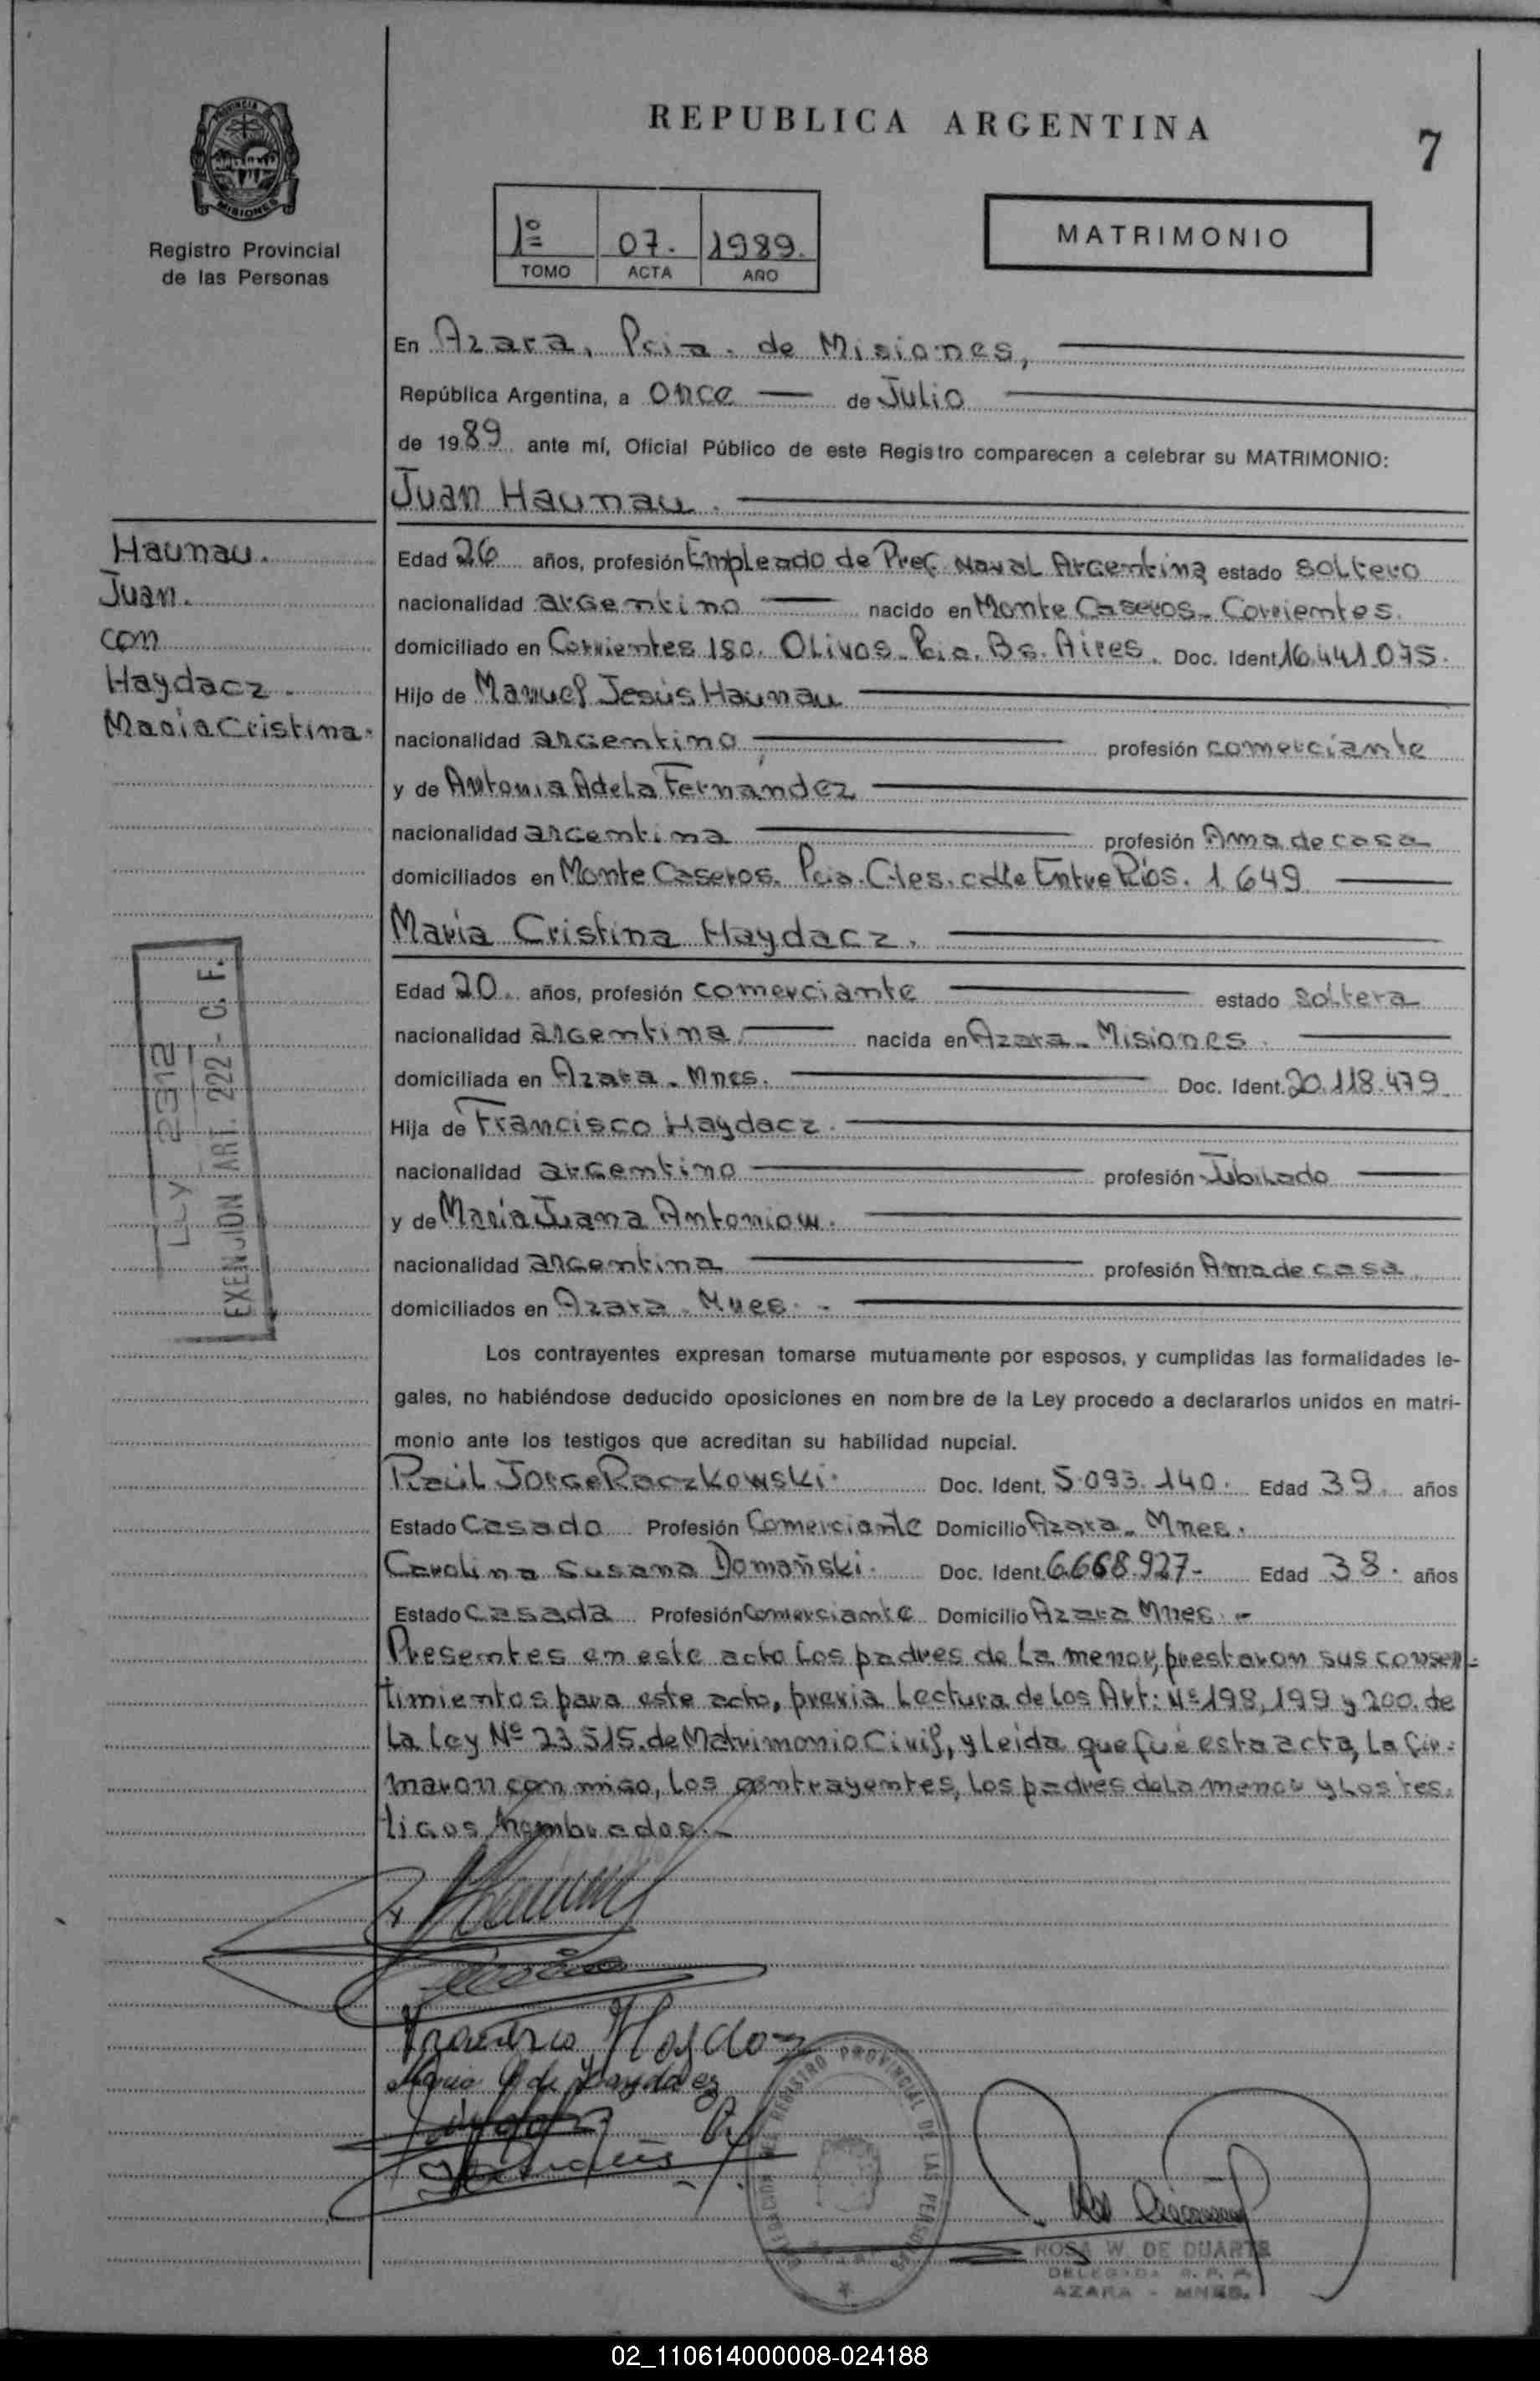 PROVINCIA
MISIONES
Registro Provincial
de las Personas
REPUBLICA ARGENTINA
7
1º 07. 1989.
TOMO ACTA AÑO
MATRIMONIO
En Azara, Pcia. de Misiones,
República Argentina, a once de Julio
de 1989 ante mí, Oficial Público de este Registro comparecen a celebrar su MATRIMONIO:
Juan Haunau.
Haunau.
Juan.
con
Haydacz.
Maria Cristina.
Edad 26 años, profesión Empleado de Pref. Naval Argentina estado soltero
nacionalidad argentino nacido en Monte Caseros - Corrientes.
domiciliado en Corrientes 180. Olivos - Pcia. Bs. Aires. Doc. Ident. 16.441.075.
Hijo de Manuel Jesús Haunau
nacionalidad argentino profesión comerciante
y de Antonia Adela Fernandez
nacionalidad argentina profesión Ama de casa
domiciliados en Monte Caseros. Pcia. Ctes. calle Entre Ríos. 1.649
Maria Cristina Haydacz.
Edad 20. años, profesión comerciante estado soltera
nacionalidad argentina nacida en Azara - Misiones.
domiciliada en Azara - Mnes. Doc. Ident. 20.118.479
Hija de Francisco Haydacz.
nacionalidad argentino profesión Jubilado
y de Maria Juana Antoniow.
nacionalidad argentina profesión Ama de casa
domiciliados en Azara - Mnes. -
LEY 2312
EXENSION ART. 222 - C. F.
Los contrayentes expresan tomarse mutuamente por esposos, y cumplidas las formalidades le-
gales, no habiéndose deducido oposiciones en nombre de la Ley procedo a declararlos unidos en matri-
monio ante los testigos que acreditan su habilidad nupcial.
Raúl Jorge Raczkowski. Doc. Ident. 5.093.140. Edad 39. años
Estado Casado Profesión Comerciante Domicilio Azara - Mnes.
Carolina Susana Domañski. Doc. Ident. 6.668.927- Edad 38. años
Estado Casada Profesión Comerciante Domicilio Azara Mnes. -
Presentes en este acto los padres de la menor, prestaron sus consen-
timientos para este acto, previa lectura de los Art: Nº 198, 199 y 200. de
la ley Nº 23.515. de Matrimonio Civil, y leída que fué esta acta, la fir-
maron con migo, los contrayentes, los padres de la menor y los tes.
tigos nombrados.-
Francisco Haydacz
Maria A de Haydacz
REGISTRO PROVINCIAL DE LAS PERSONAS
ROSA W. DE DUARTE
DELEGADA R. P. P.
AZARA - MNES.
02_110614000008-024188